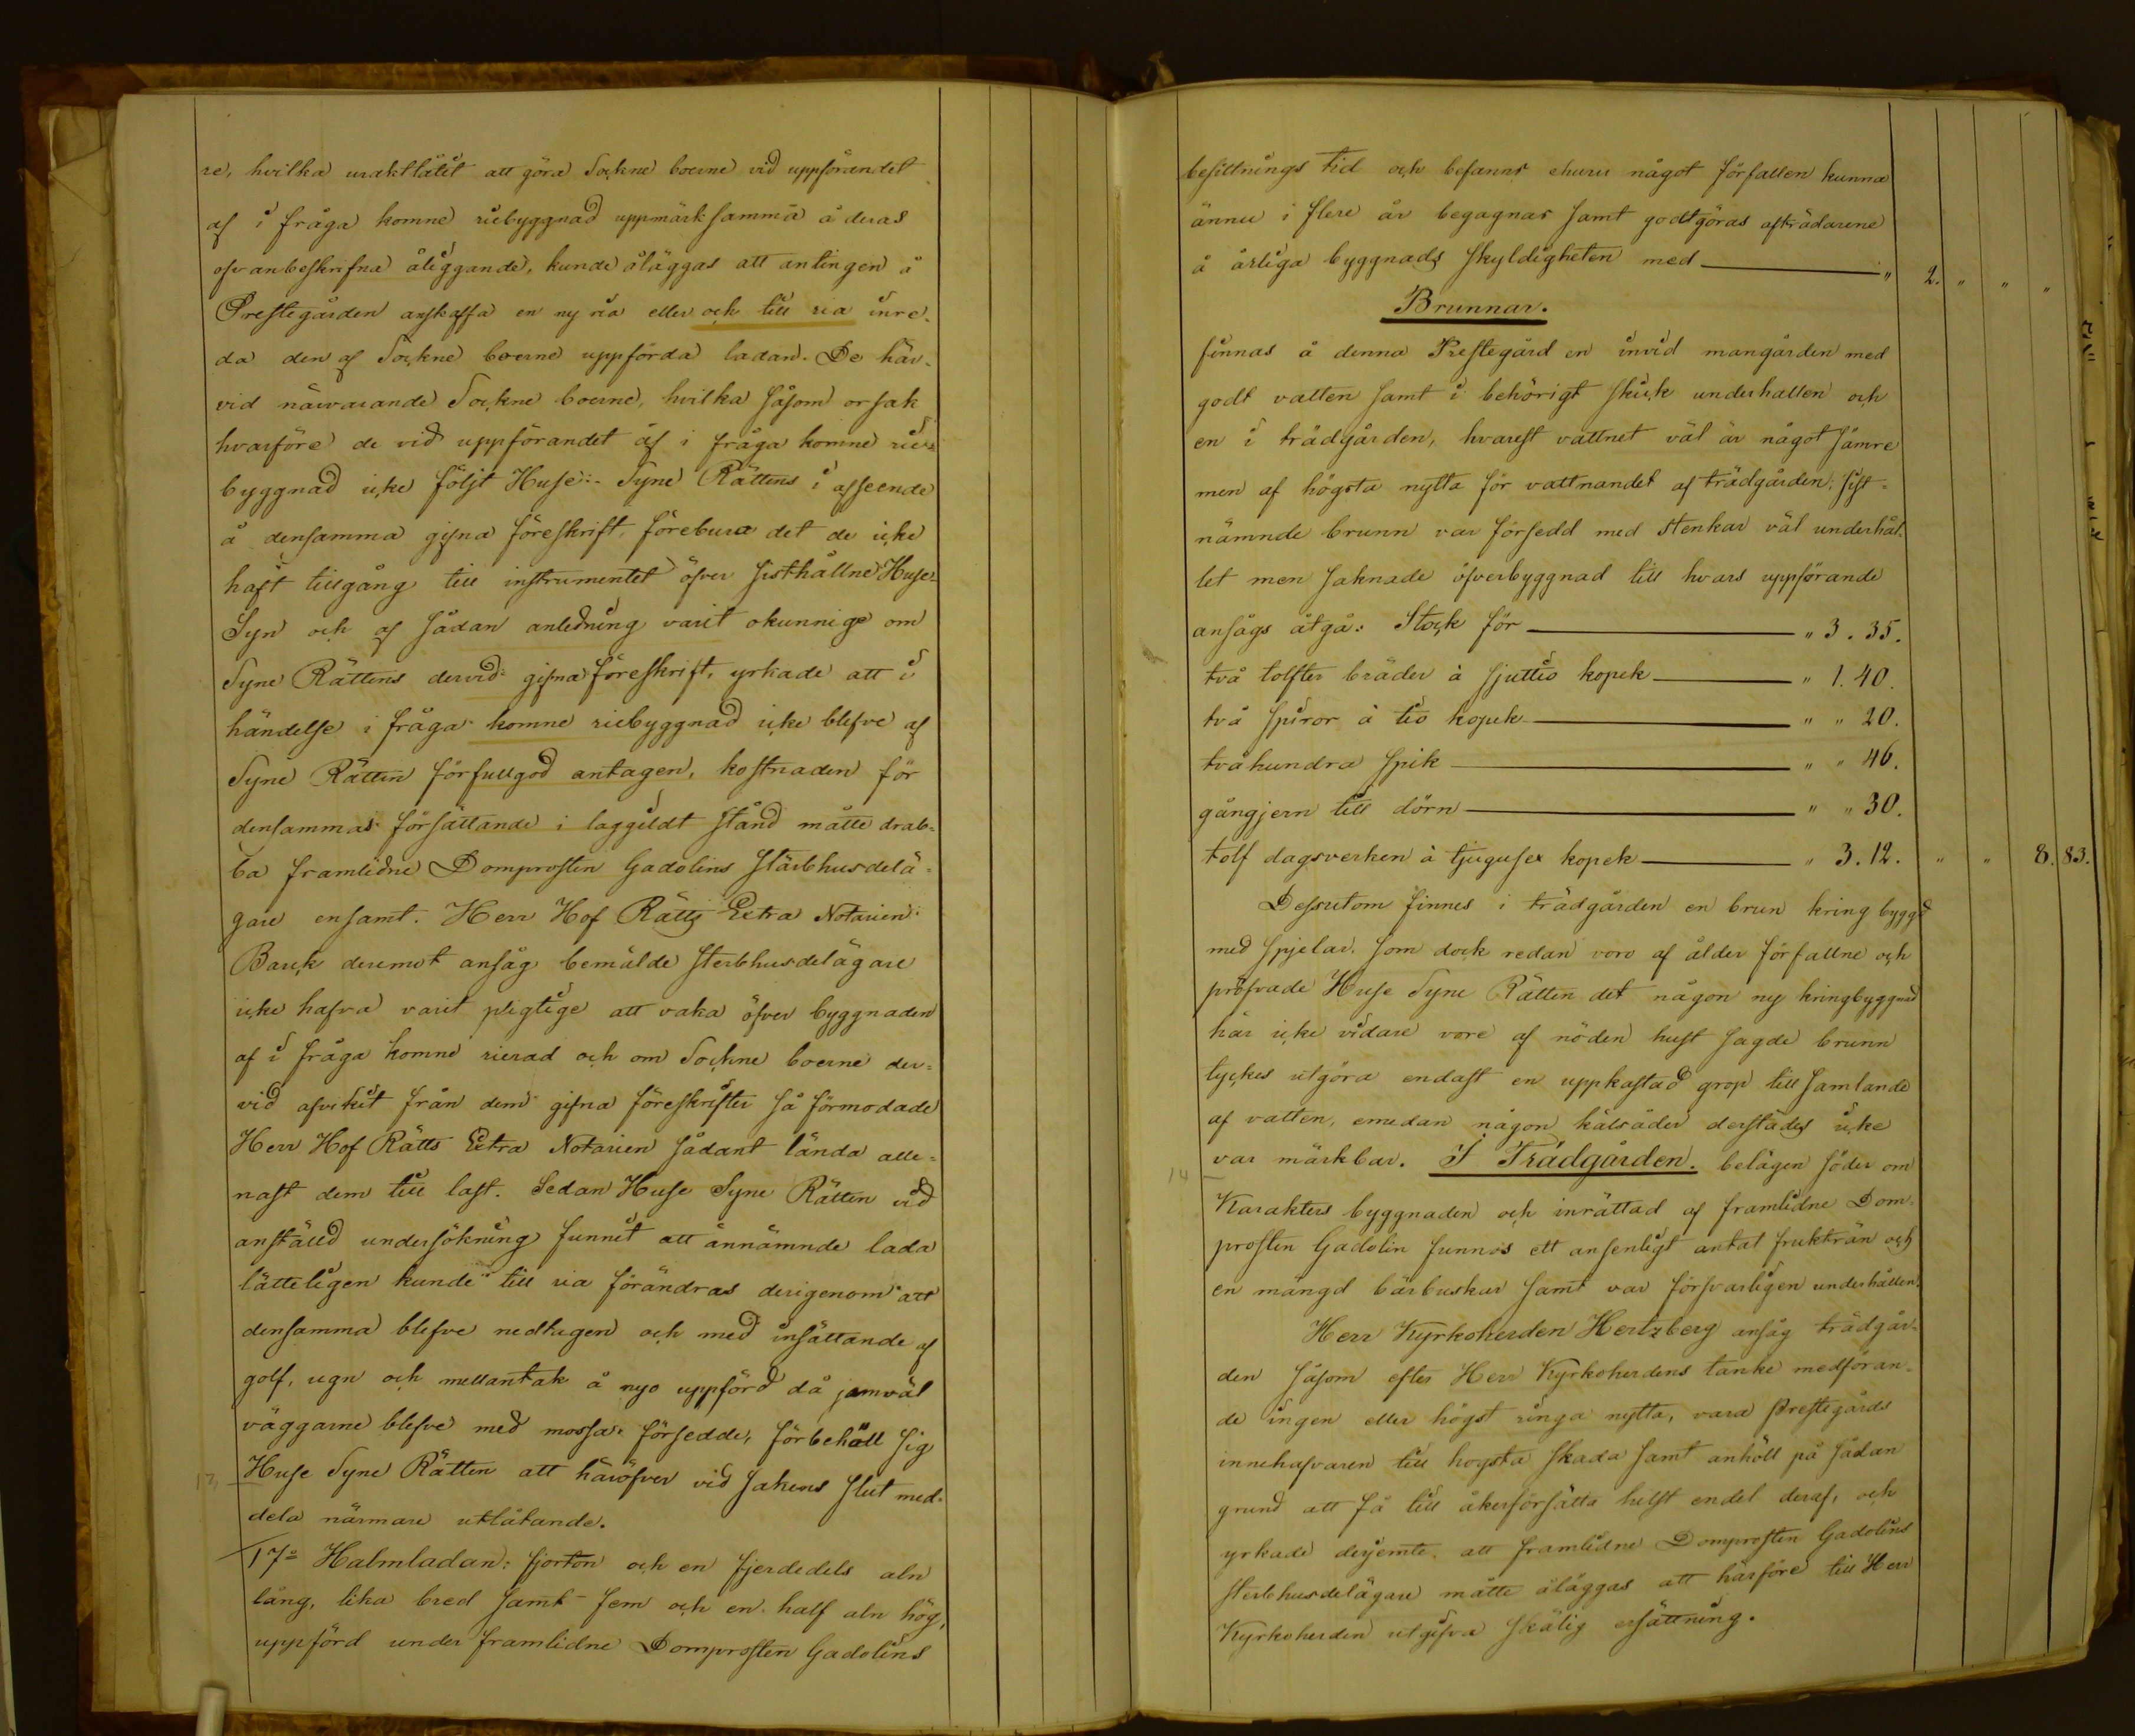 re, hvilka uraktlåtit att göra Sockne boerne vid uppförandet
af i fråga komne riebyggnad uppmärksamma å deras
ofvanbeskrifna åliggande, kunde åläggas att antingen å
Prestegården anskaffa en ny ria eller och till ria inre-
da den af Sockne boerne uppförda ladan. De här-
vid närvarande Sockne boerne, hvilka såsom orsak
hvarföre de vid uppförandet af i fråga komne rie-
byggnad icke följt Huse-Syne Rättens i afseende
å densamma gifna föreskrift, förebura det de icke
haft tillgång till instrumentet öfver sisthållne Huse-
Syn och af sådan anledning varit okunnige om
Syne Rättens dervid gifna föreskrift, yrkade att i
händelse i fråga komne riebyggnad icke blefve af
Syne Rätten förfullgod antagen, kostnaden för
densammas försättande i laggildt stånd måtte drab-
ba framlidne Domprosten Gadolins stärbhusdelä-
gare ensamt. Herr Hof Rätts Extra Notarien
Barck deremot ansåg bemälde sterbhusdelägare
icke hafva varit pligtige att vaka öfver byggnaden
af i fråga komne rierad och om Sockne boerne der-
vid afvikit från dem gifna föreskrifter så förmodade
Herr Hof Rätts Extra Notarien sådant lända alle-
nast dem till last. Sedan Huse Syne Rätten vid
anställd undersökning funnit att ännämnde lada
lätteligen kunde till ria förändras derigenom att
densamma blefve nedtagen och med insättande af
golf, ugn och mellantak å nyo uppförd då jemväl
väggarne blefve med mossa försedde, förbehåll sig
Huse Syne Rätten att häröfver vid sakens slut med-
dela närmare utlåtande.
17º Halmladan: fjorton och en fjerdedels aln
lång, lika bred samt fem och en half aln hög,
uppförd under framlidne Domprosten Gadolins
besittnings tid och befanns ehuru något förfallen kunna
ännu i flere år begagnas samt godtgöras afträdarene
å årliga byggnads skyldigheten med " 2. " " "
Brunnar.
finnas å denna Prestegård en invid mangården med
godt vatten samt i behörigt skick underhallen och
en i trädgården, hvarest vattnet väl är något sämre
men af högsta nytta för vattnandet af trädgården; sist-
nämnde brunn var försedd med Stenkar väl underhål-
let men saknade öfverbyggnad till hvars uppförande
ansågs åtgå: Stock för " 3. 35.
två tolfter bräder à sjuttio kopek " 1. 40.
två spiror à tio kopek " " 20.
tvåhundra spik " " 46.
gångjern till dörn " " 30.
tolf dagsverken à tjugusex kopek " 3. 12. " " 8. 83.
Dessutom finnes i trädgården en brun kring byggd
med spjelar, som dock redan voro af ålder förfallne och
pröfvade Huse Syne Rätten det någon ny kringbyggnad
här icke vidare vore af nöden hust sagde brunn
tyckes utgöra endast en uppkastad grop till samlande
af vatten, emedan någon kålsåder derstädes icke
14 var märkbar. I Trädgården. belägen söder om
Karakters byggnaden och inrättad af framlidne Dom-
prosten Gadolin funnos ett ansenligt antal frukträn och
en mängd bärbuskar samt var försvarligen underhållen.
Herr Kyrkoherden Hertzberg ansåg trädgår-
den såsom efter Herr Kyrkoherdens tanke medföran-
de ingen eller högst ringa nytta, vara Prestegårds
innehafvaren till hogsta skada samt anhöll på sådan
grund att få till åkerförsätta helst endel deraf, och
yrkade derjemte, att framlidne Domprosten Gadolins
sterbhusdelägare måtte åläggas att härföre till Herr
Kyrkoherden utgifva skälig ersättning.